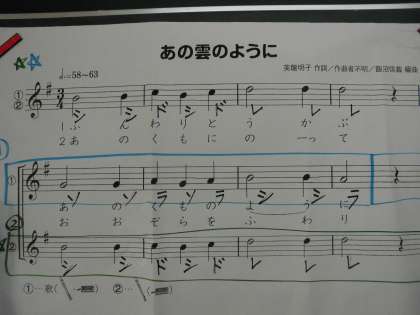 あの雲のように
♩.=58~63
芙龍明子 作詞/作曲者不明/飯沼信義 編曲
①
②
シ シ ド シ ド レ レ
1 ふ ん わ り と う か ぶ
2 あ の く も に の ー っ て
①
ソ ソ ラ ソ ラ シ ラ
あ の く も の よ う に
お お ぞ ら を ふ わ り
②
②
シ シ ド シ ド レ レ
①…歌( ) ②…( )